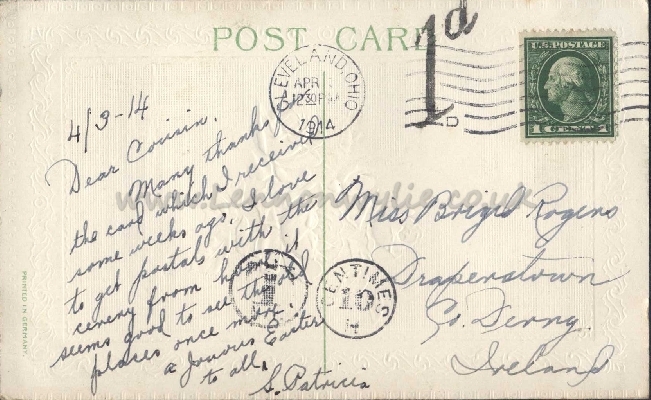 POST CARD
1d
CLEVELAND, OHIO
APR
1230PM
1914
D
U.S. POSTAGE
1 CENTS 1
4/3-14
Dear Cousin.
Many thanks for
the card which I received
some weeks ago. I love
to get postals with the
scenery from home it
seems good to see the old
places once more.
a Joyous Easter
to all.
S. Patricia
Miss Briged Rogers
Draperstown
Co. Derry.
Ireland
CENTIMES
10
PRINTED IN GERMANY.